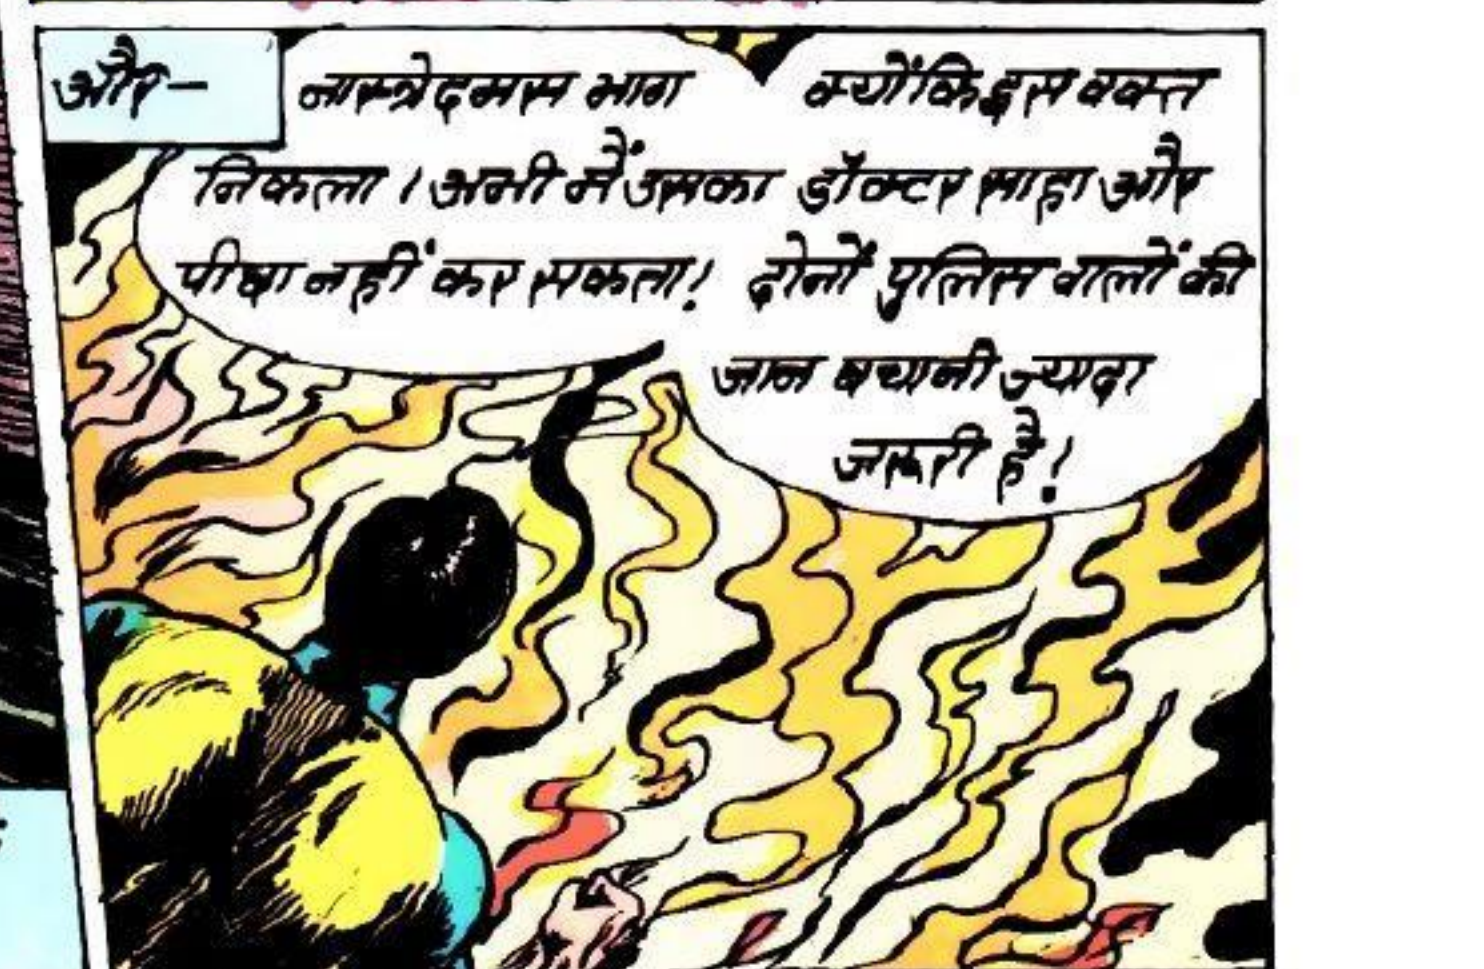 और-
नास्त्रेदमस भाग
निकला। अभी मैं उसका
पीछा नहीं कर सकता!
क्योंकि इस वक्त
डॉक्टर साहा और
दोनों पुलिस वालों की
जान बचानी ज्यादा
जरूरी है!